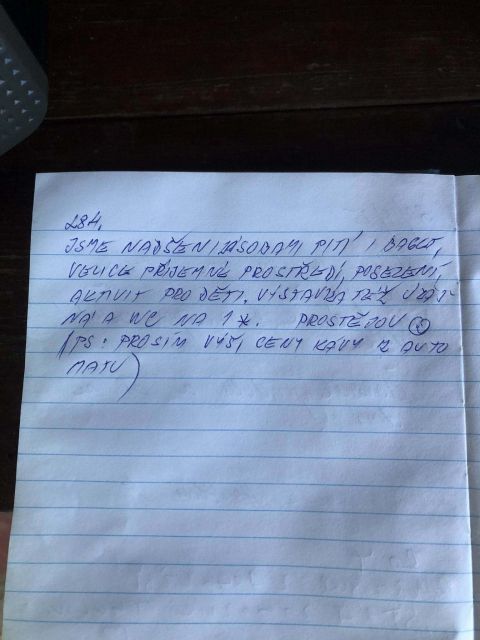 284.
JSME NADŠENI ZÁSOBAMI PITÍ I BAGET,
VELICE PŘÍJEMNÉ PROSTŘEDÍ, POSEZENÍ,
AKTIVIT PRO DĚTI. VÝSTAVKA TÉŽ ÚŽAS
NÁ A WC NA 1*. PROSTĚJOV
(PS: PROSÍM VYŠ, CENY KÁVY Z AUTO
MATU)